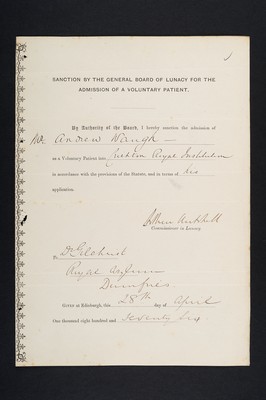 SANCTION BY THE GENERAL BOARD OF LUNACY FOR THE
ADMISSION OF A VOLUNTARY PATIENT.
By Authority of the Board, I hereby sanction the admission of
Mr. Andrew Waugh —
as a Voluntary Patient into Crichton Royal Institution
in accordance with the provisions of the Statute, and in terms of his
application.
Arthur Mitchell
Commissioner in Lunacy.
To Dr Gilchrist
Royal Asylum
Dumfries
Given at Edinburgh, this 28th day of April
One thousand eight hundred and seventy six